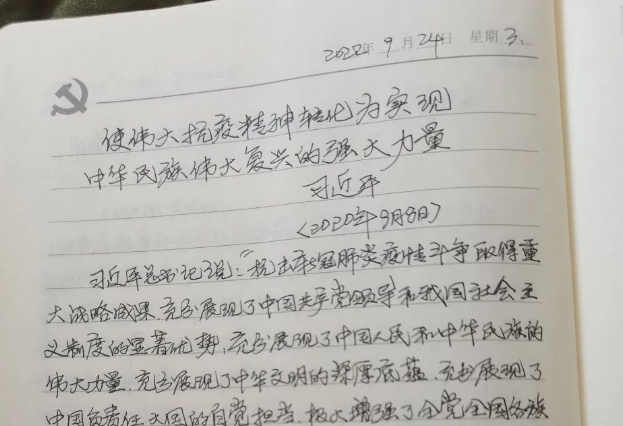 2020年9月24日 星期3.
使伟大抗疫精神转化为实现
中华民族伟大复兴的强大力量
习近平
(2020年9月8日)
习近平总书记说:“抗击新冠肺炎疫情斗争取得重
大战略成果,充分展现了中国共产党领导和我国社会主
义制度的显著优势,充分展现了中国人民和中华民族的
伟大力量,充分展现了中华文明的深厚底蕴,充分展现了
中国负责任大国的自觉担当,极大增强了全党全国各族